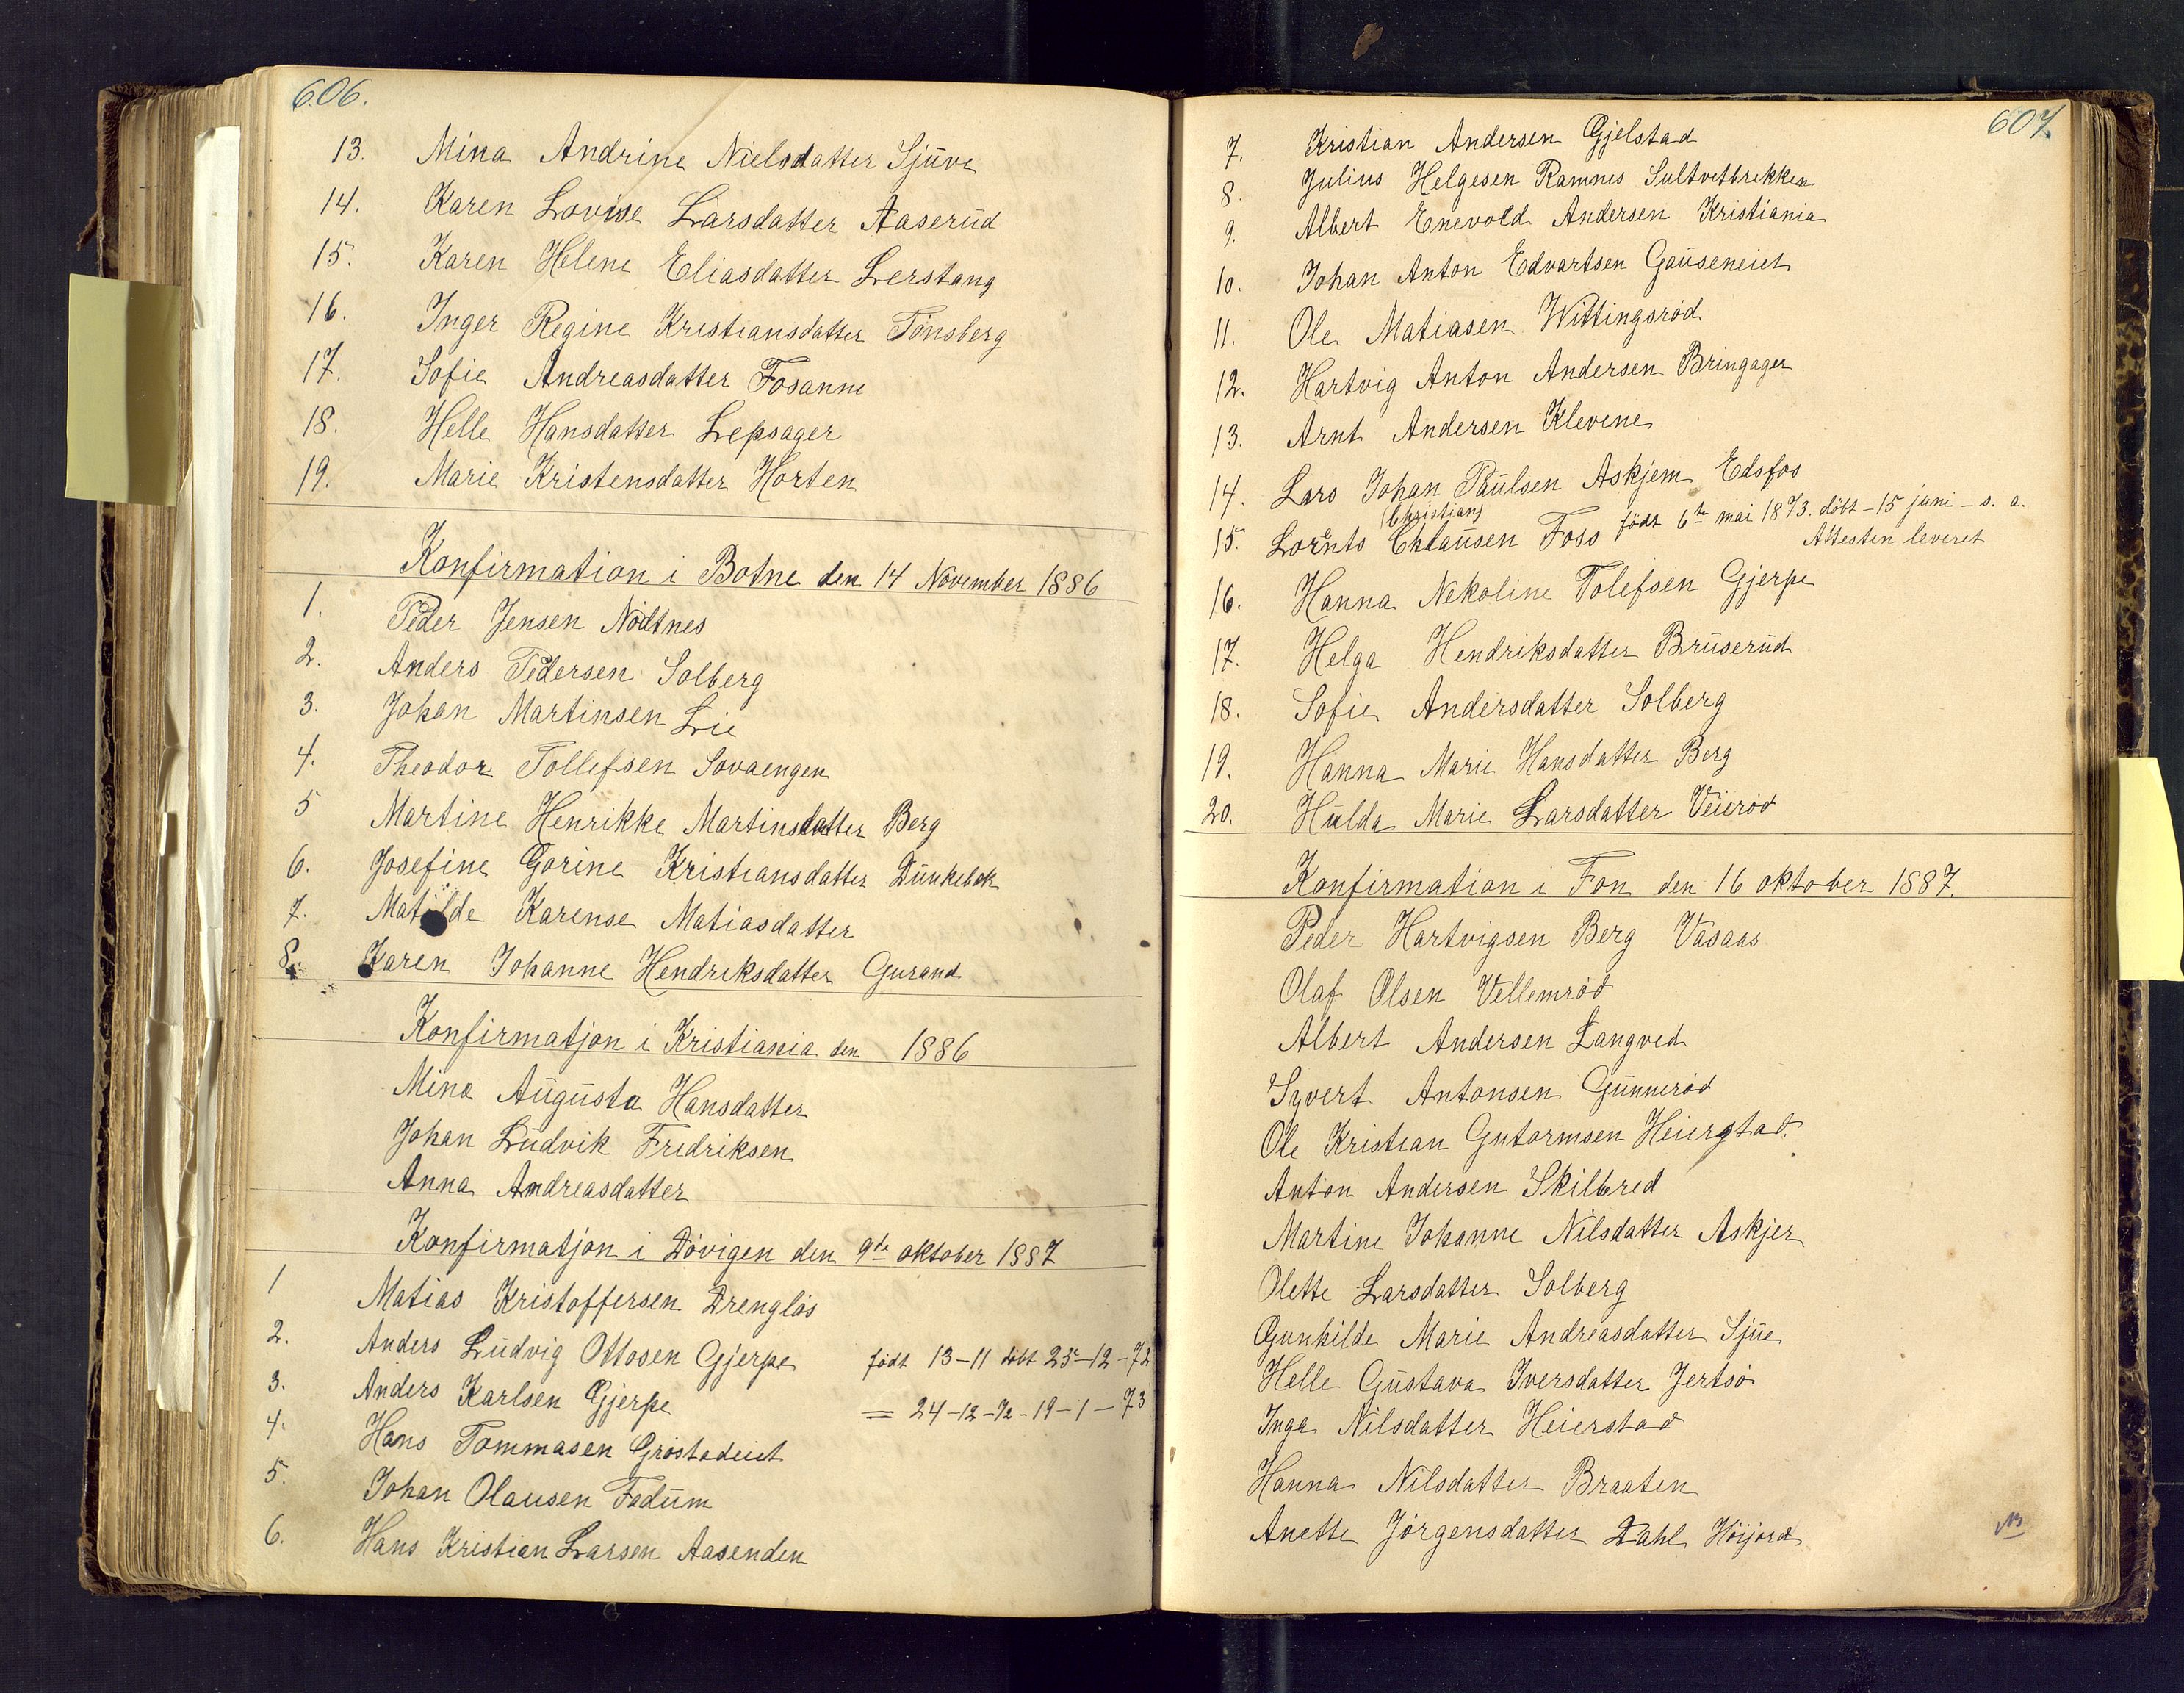 606.
13. Mina Andrine Nielsdatter Sjuve
14. Karen Lovise Larsdatter Aaserud
15. Karen Helene Eliasdatter Lerstang
16. Inger Regine Kristiansdatter Tönsberg
17. Sofie Andreasdatter Fosanne
18. Helle Hansdatter Lepsager
19. Marie Kristensdatter Horten
Konfirmation i Botne den 14 November 1886
1. Peder Jensen Nödtnes
2. Anders Pedersen Solberg
3. Johan Martinsen Lie
4. Theodor Tollefsen Sovaengen
5 Martine Henrikke Martinsdatter Berg
6. Josefine Gorine Kristiansdatter Dunkebek
7. Matilde Karense Matiasdatter
8. Karen Johanne Hendriksdatter Gurand
Konfirmatjon i Kristiania den 1886
Mina Augusta Hansdatter
Johan Ludvik Fredriksen
Anna Andreasdatter
Konfirmatjon i Dövigen den 9de oktober 1887
1 Matias Kristoffersen Drenglös
2. Anders Ludvig Ottosen Gjerpe födt 13-11 döbt 25-12-72
3. Anders Karlsen Gjerpe = 24-12-72-19-1-73
4. Hans Tommasen Gröstadeiet
5. Johan Olausen Fadum
6. Hans Kristian Larsen Aasenden
607.
7. Kristian Andersen Gjelstad
8. Julius Helgesen Ramnes Sultvetbrekken
9. Albert Enevold Andersen Kristiania
10. Johan Anton Edvartsen Gauseneiet
11. Ole Matiasen Wittingsröd
12. Hartvig Anton Andersen Bringager
13. Arnt Andersen Klevene
14. Lars Johan Paulsen Askjem Edsfos
(Christian)
15. Lornts Chlausen Foss födt 6te mai 1873. döbt - 15 juni - s. a.
Attesten leveret
16. Hanna Nekoline Tolefsen Gjerpe
17. Helga Hendriksdatter Bruserud
18. Sofie Andersdatter Solberg
19. Hanna Marie Hansdatter Berg
20. Hulda Marie Larsdatter Veieröd
Konfirmation i Fon den 16 oktober 1887.
Peder Hartvigsen Berg Vasaas
Olaf Olsen Vellemröd
Albert Andersen Langved
Syvert Antonsen Gunneröd
Ole Kristian Gutormsen Heierstad.
Anton Andersen Skilbred
Martine Johanne Nilsdatter Askjer
Olette Larsdatter Solberg
Gunhilde Marie Andreasdatter Sjue
Helle Gustava Iversdatter Jertsö
Inga Nilsdatter Heierstad
Hanna Nilsdatter Braaten
Anette Jörgensdatter Dahl Höijord